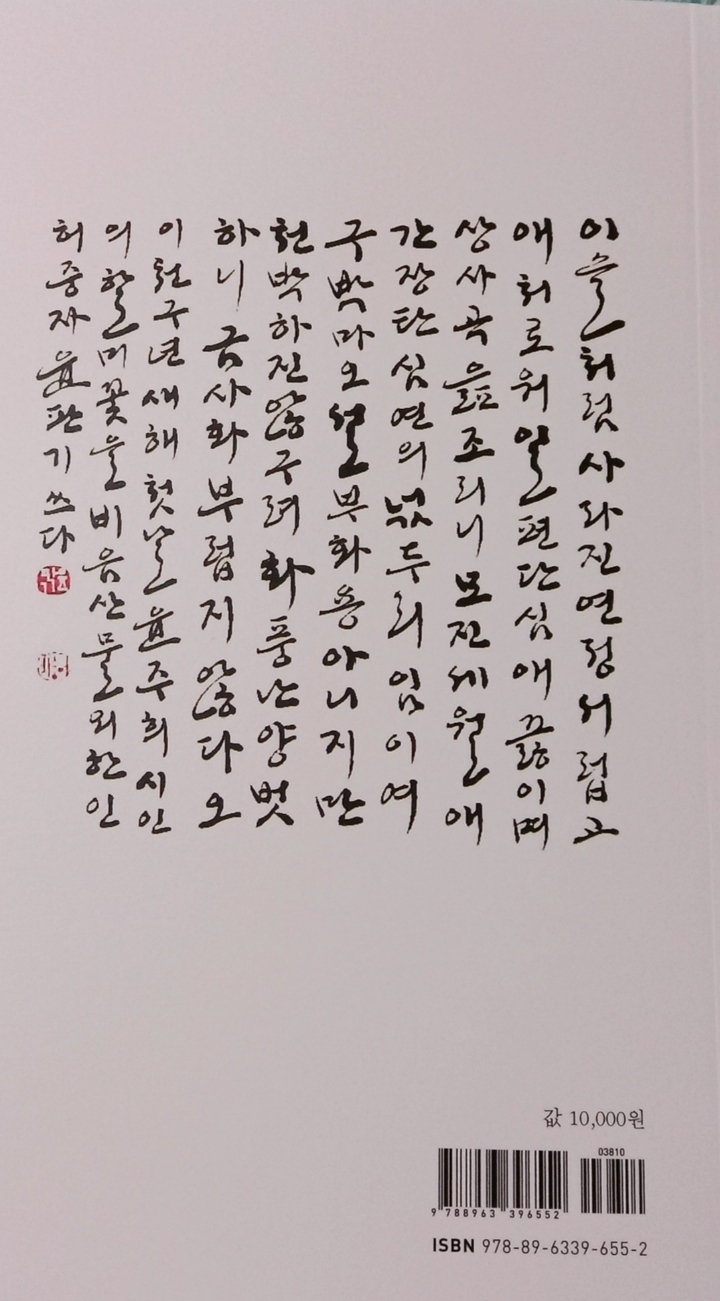 이슬처럼 사라진 연정 서럽고
애처로워 일편단심 애끓이며
상사곡 읊조리니 모진 세월 애
간장 탄 심연의 넋두리 임이여
구박마오 설부화용 아니지만
천박하진 않구려 화풍난양 벗
하니 금사화 부럽지 않다오
이천구년 새해 첫날 윤주희 시인
의 할미꽃을 비음산 물외한인
허중자 윤판기 쓰다
값 10,000원
03810
9 788963 396552
ISBN 978-89-6339-655-2